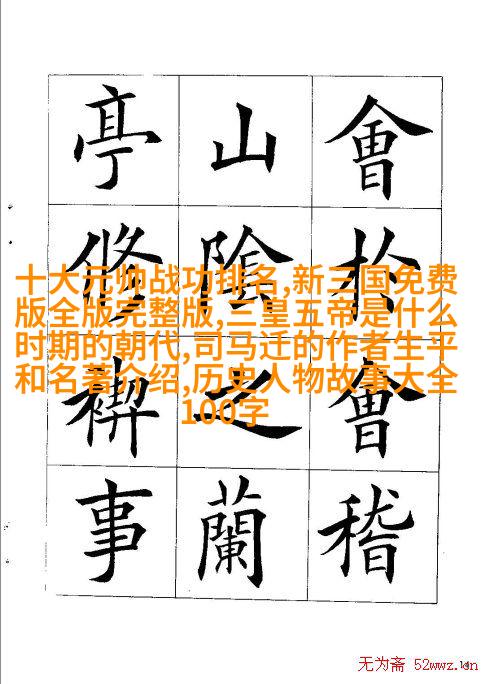 會於會稽
山陰之蘭
亭脩禊事
十大元帅战功排名,新三国免费
版全版完整版,三皇五帝是什么
时期的朝代,司马迁的作者生平
和名著介绍,历史人物故事大全
100字
无为斋 52wwz.cn